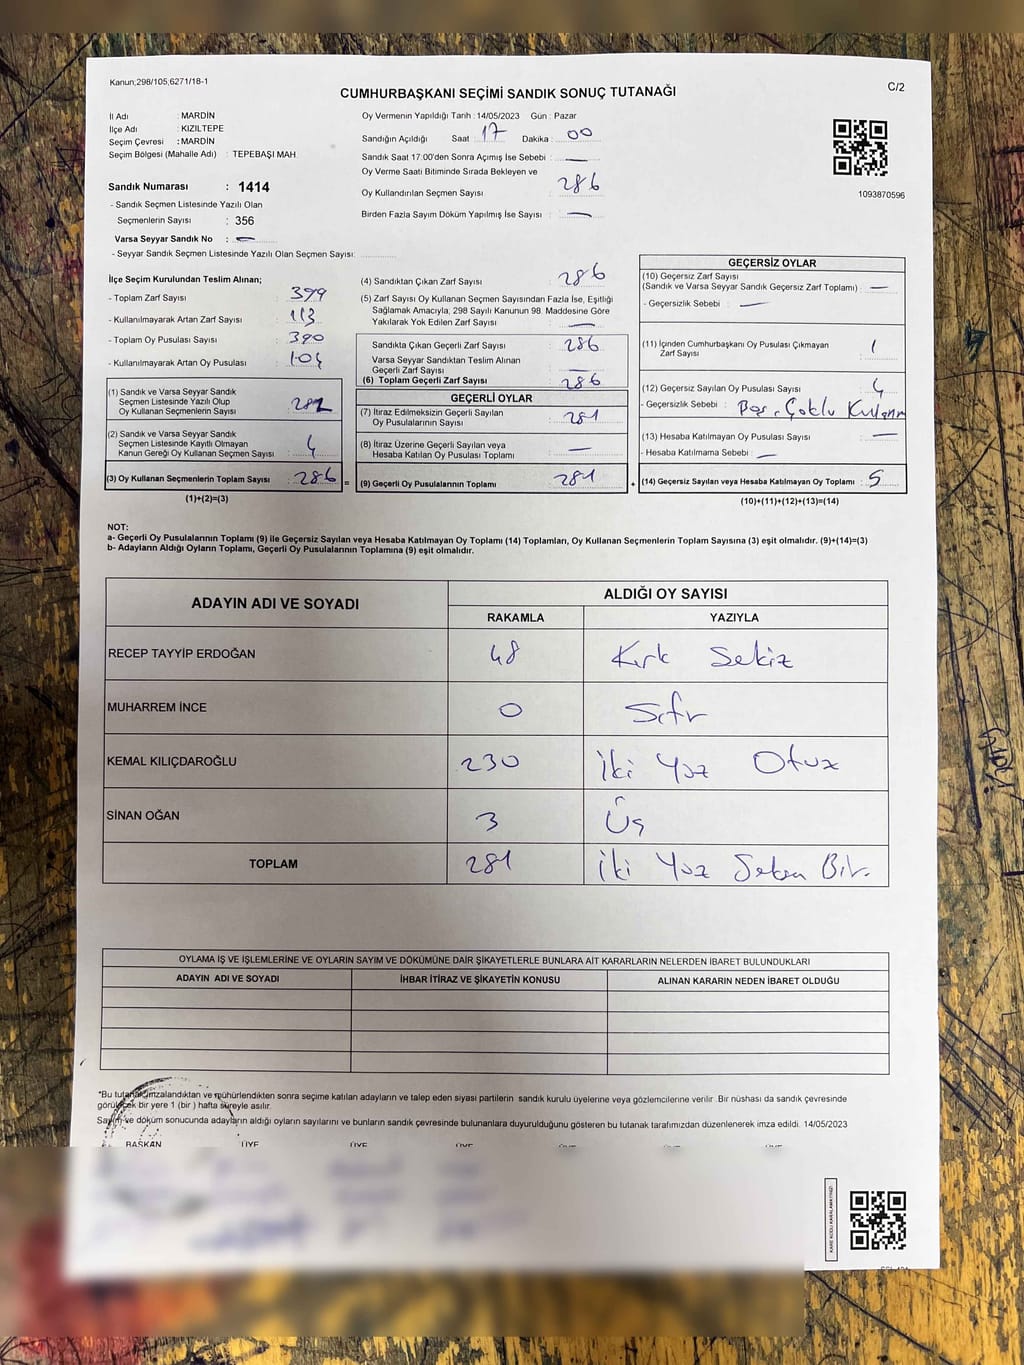 Kanun;298/105,6271/18-1
C/2
CUMHURBAŞKANI SEÇİMİ SANDIK SONUÇ TUTANAĞI
İl Adı : MARDİN
İlçe Adı : KIZILTEPE
Seçim Çevresi : MARDİN
Seçim Bölgesi (Mahalle Adı) : TEPEBAŞI MAH
Oy Vermenin Yapıldığı Tarih : 14/05/2023 Gün : Pazar
Sandığın Açıldığı Saat : 17 Dakika : 00
Sandık Saat 17.00'den Sonra Açımış İse Sebebi : —
Oy Verme Saati Bitiminde Sırada Bekleyen ve
Oy Kullandırılan Seçmen Sayısı : 286
Birden Fazla Sayım Döküm Yapılmış İse Sayısı : —
1093870596
Sandık Numarası : 1414
- Sandık Seçmen Listesinde Yazılı Olan
Seçmenlerin Sayısı : 356
Varsa Seyyar Sandık No : —
- Seyyar Sandık Seçmen Listesinde Yazılı Olan Seçmen Sayısı:
İlçe Seçim Kurulundan Teslim Alınan;
- Toplam Zarf Sayısı : 399
- Kullanılmayarak Artan Zarf Sayısı : 113
- Toplam Oy Pusulası Sayısı : 390
- Kullanılmayarak Artan Oy Pusulası : 104
(1) Sandık ve Varsa Seyyar Sandık
Seçmen Listesinde Yazılı Olup
Oy Kullanan Seçmenlerin Sayısı : 282
(2) Sandık ve Varsa Seyyar Sandık
Seçmen Listesinde Kayıtlı Olmayan
Kanun Gereği Oy Kullanan Seçmen Sayısı : 4
(3) Oy Kullanan Seçmenlerin Toplam Sayısı : 286 =
(1)+(2)=(3)
(4) Sandıktan Çıkan Zarf Sayısı : 286
(5) Zarf Sayısı Oy Kullanan Seçmen Sayısından Fazla İse, Eşitliği
Sağlamak Amacıyla, 298 Sayılı Kanunun 98. Maddesine Göre
Yakılarak Yok Edilen Zarf Sayısı : —
Sandıkta Çıkan Geçerli Zarf Sayısı : 286
Varsa Seyyar Sandıktan Teslim Alınan
Geçerli Zarf Sayısı : —
(6) Toplam Geçerli Zarf Sayısı : 286
GEÇERLİ OYLAR
(7) İtiraz Edilmeksizin Geçerli Sayılan
Oy Pusulalarının Sayısı : 281
(8) İtiraz Üzerine Geçerli Sayılan veya
Hesaba Katılan Oy Pusulası Toplamı : —
(9) Geçerli Oy Pusulalarının Toplamı : 281 +
GEÇERSİZ OYLAR
(10) Geçersiz Zarf Sayısı
(Sandık ve Varsa Seyyar Sandık Geçersiz Zarf Toplamı) : —
- Geçersizlik Sebebi : —
(11) İçinden Cumhurbaşkanı Oy Pusulası Çıkmayan
Zarf Sayısı : 1
(12) Geçersiz Sayılan Oy Pusulası Sayısı : 4
- Geçersizlik Sebebi : Boş, Çoklu Kullanım
(13) Hesaba Katılmayan Oy Pusulası Sayısı : —
- Hesaba Katılmama Sebebi : —
(14) Geçersiz Sayılan veya Hesaba Katılmayan Oy Toplamı : 5
(10)+(11)+(12)+(13)=(14)
NOT:
a- Geçerli Oy Pusulalarının Toplamı (9) ile Geçersiz Sayılan veya Hesaba Katılmayan Oy Toplamı (14) Toplamları, Oy Kullanan Seçmenlerin Toplam Sayısına (3) eşit olmalıdır. (9)+(14)=(3)
b- Adayların Aldığı Oyların Toplamı, Geçerli Oy Pusulalarının Toplamına (9) eşit olmalıdır.
ADAYIN ADI VE SOYADI
ALDIĞI OY SAYISI
RAKAMLA YAZIYLA
RECEP TAYYİP ERDOĞAN 48 Kırk Sekiz
MUHARREM İNCE 0 Sıfır
KEMAL KILIÇDAROĞLU 230 İki Yüz Otuz
SİNAN OĞAN 3 Üç
TOPLAM 281 İki Yüz Seksen Bir.
OYLAMA İŞ VE İŞLEMLERİNE VE OYLARIN SAYIM VE DÖKÜMÜNE DAİR ŞİKAYETLERLE BUNLARA AİT KARARLARIN NELERDEN İBARET BULUNDUKLARI
ADAYIN ADI VE SOYADI İHBAR İTİRAZ VE ŞİKAYETİN KONUSU ALINAN KARARIN NEDEN İBARET OLDUĞU
*Bu tutanak imzalandıktan ve mühürlendikten sonra seçime katılan adayların ve talep eden siyasi partilerin sandık kurulu üyelerine veya gözlemcilerine verilir .Bir nüshası da sandık çevresinde
görülecek bir yere 1 (bir ) hafta süreyle asılır.
Sayım ve döküm sonucunda adayların aldığı oyların sayılarını ve bunların sandık çevresinde bulunanlara duyurulduğunu gösteren bu tutanak tarafımızdan düzenlenerek imza edildi. 14/05/2023
BAŞKAN ÜYE ÜYE ÜYE